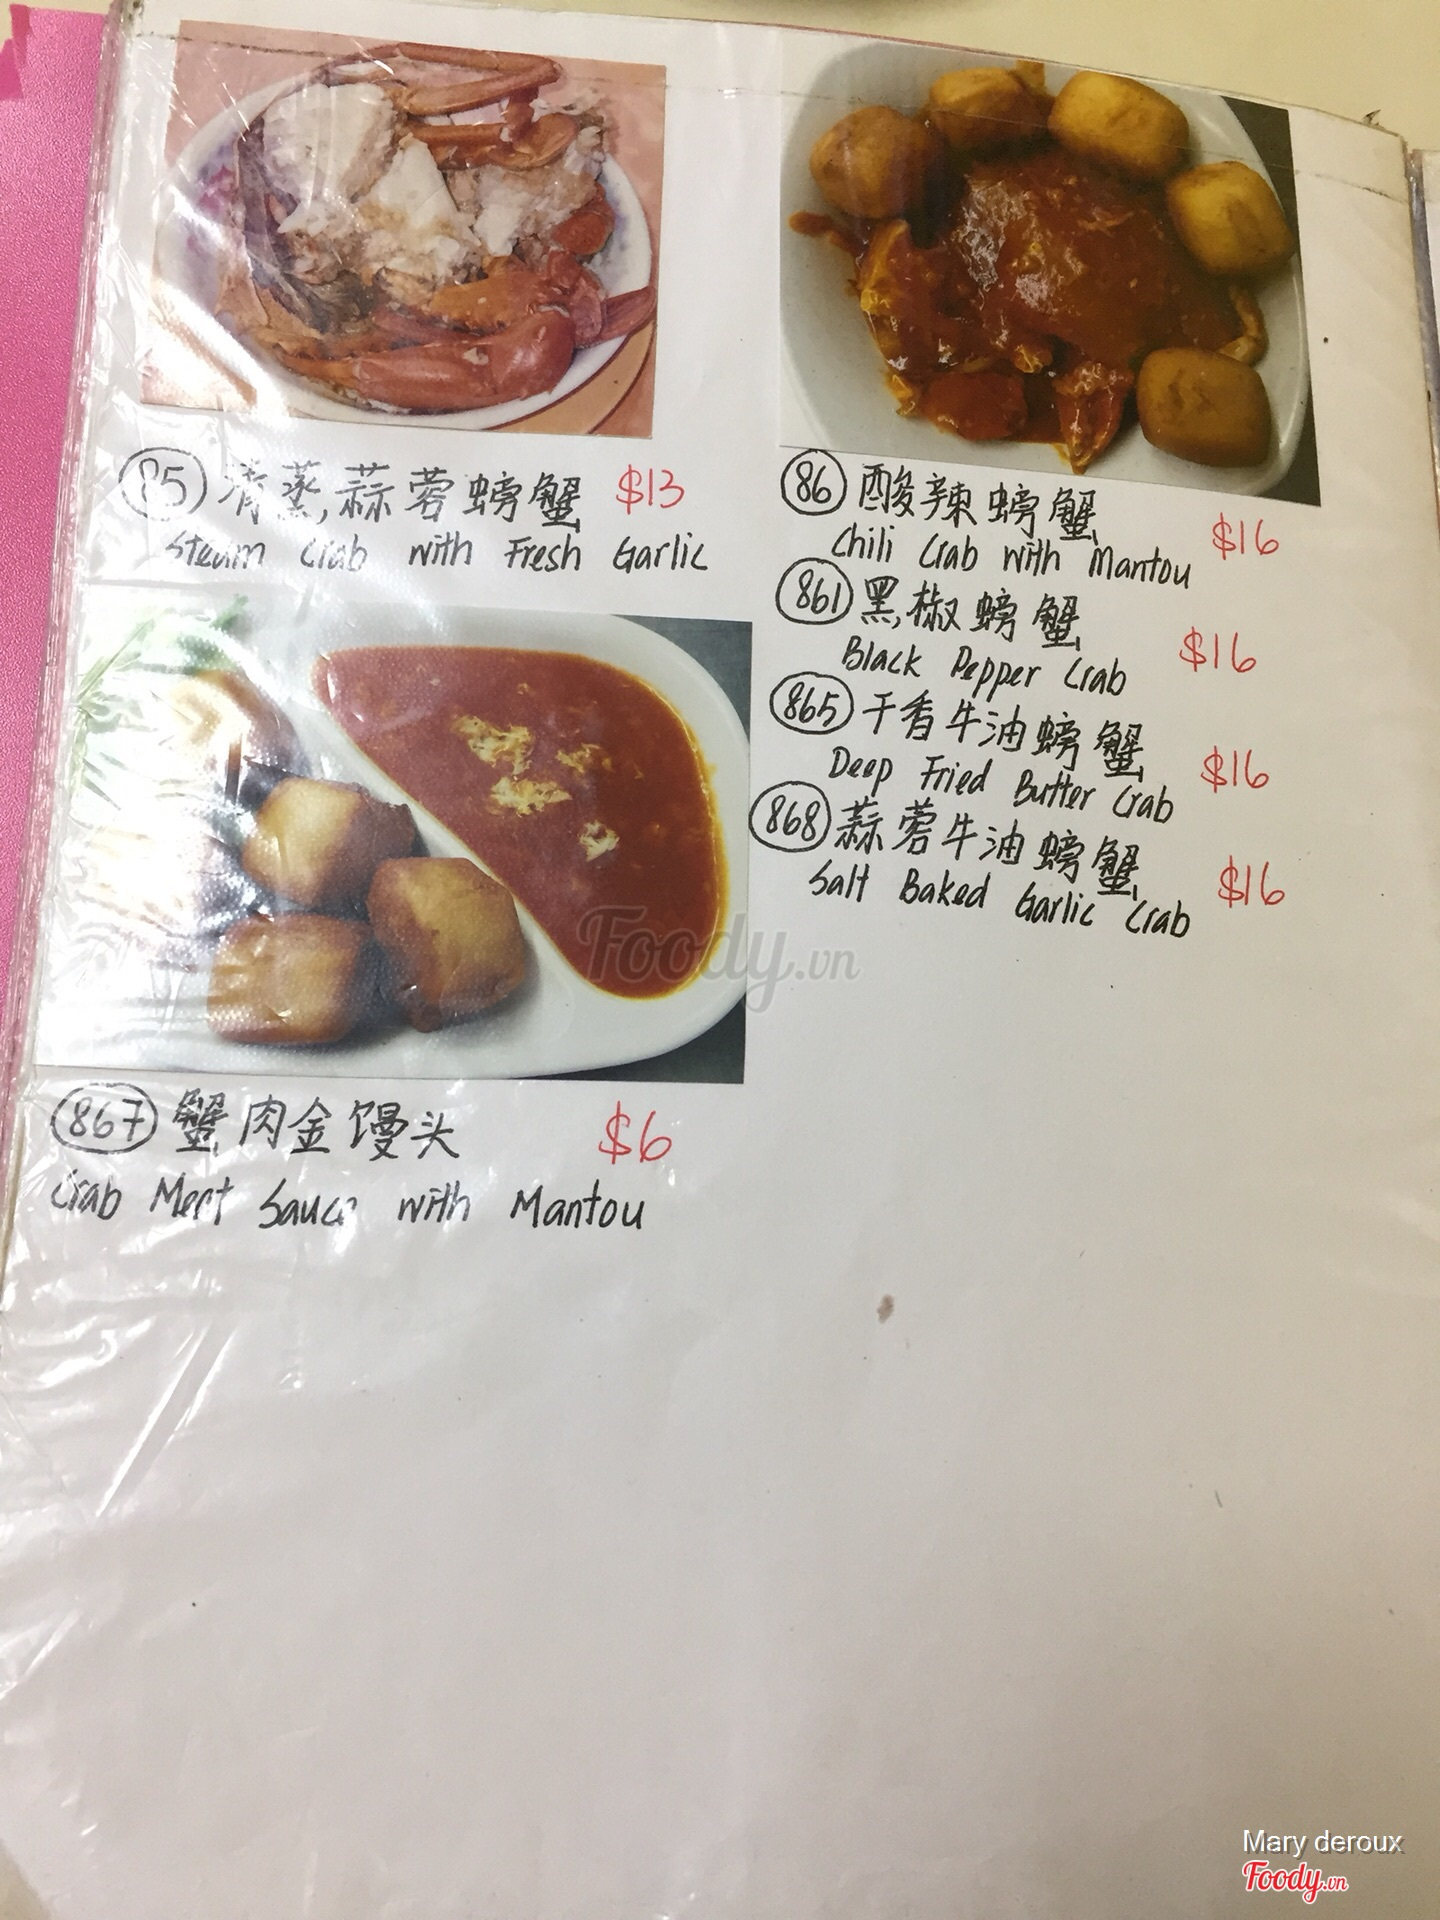 85 清蒸,蒜蓉螃蟹 $13
Steam Crab with Fresh Garlic
86 酸辣螃蟹 $16
Chili Crab with Mantou
861 黑椒螃蟹 $16
Black Pepper Crab
865 干香牛油螃蟹 $16
Deep Fried Butter Crab
868 蒜蓉牛油螃蟹 $16
Salt Baked Garlic Crab
Foody.vn
867 蟹肉金馒头 $6
Crab Meat Sauce with Mantou
Mary deroux
Foody.vn